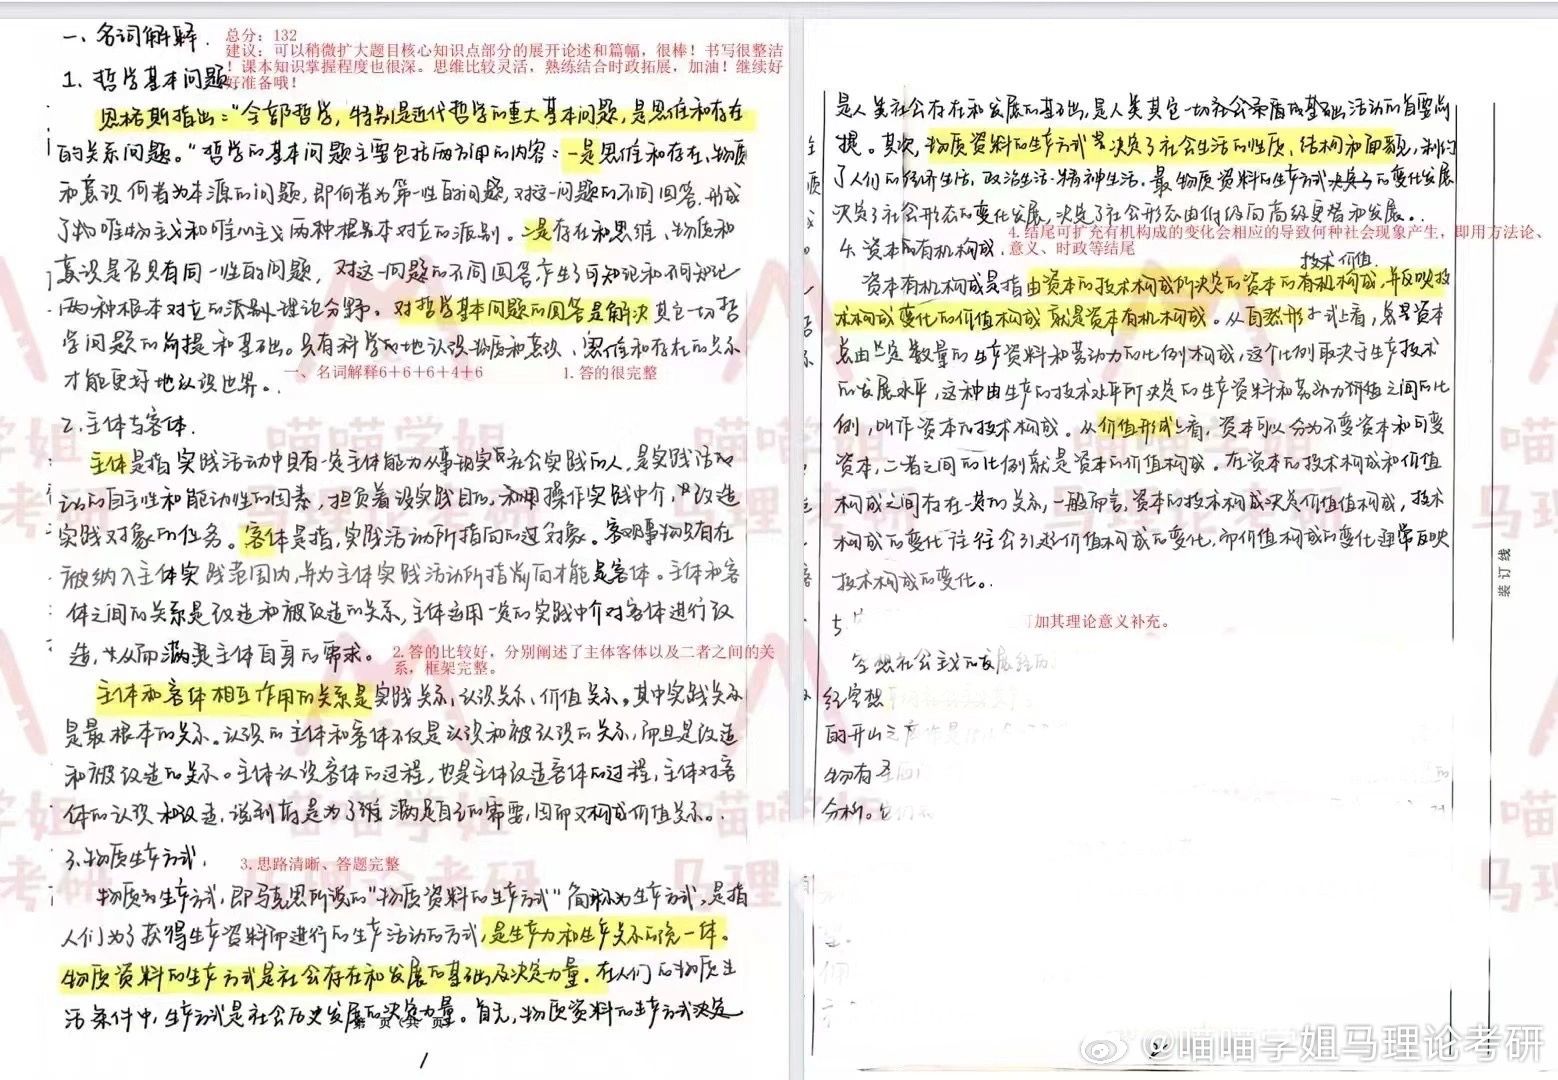 一、名词解释.
总分：132
建议：可以稍微扩大题目核心知识点部分的展开论述和篇幅，很棒！书写很整洁
！课本知识掌握程度也很深。思维比较灵活，熟练结合时政拓展，加油！继续好
好准备哦！
1. 哲学基本问题
恩格斯指出："全部哲学，特别是近代哲学的重大基本问题，是思维和存在
的关系问题。"哲学的基本问题主要包括两方面的内容：一是思维和存在、物质
和意识何者为本源的问题，即何者为第一性的问题，对这一问题的不同回答，形成
了唯物主义和唯心主义两种根本对立的派别。二是存在和思维、物质和
意识是否具有同一性的问题，对这一问题的不同回答产生了可知论和不可知论
两种根本对立的派别理论分野。对哲学基本问题的回答是解决其它一切哲
学问题的前提和基础。只有科学的地认识物质和意识、思维和存在的关系
才能更好地认识世界。
一、名词解释6+6+6+4+6
1.答的很完整
2.主体与客体.
主体是指实践活动中具有一定主体能力从事现实社会实践的人，是实践活动
动的自主性和能动性的因素，担负着设实践目的、和用操作实践中介，改造
实践对象的任务。客体是指，实践活动所指向的对象。客观事物只有在
被纳入主体实践范围内，并为主体实践活动所指向时才能是客体。主体和客
体之间的关系是改造和被改造的关系，主体运用一定的实践中介对客体进行改
造，从而满足主体自身的需求。
2.答的比较好，分别阐述了主体客体以及二者之间的关
系，框架完整。
主体和客体相互作用的关系是实践关系，认识关系、价值关系。其中实践关系
是最根本的关系。认识的主体和客体不仅是认识和被认识的关系，而且是改造
和被改造的关系。主体认识客体的过程，也是主体改造客体的过程，主体对客
体的认识和改造，说到底是为了满足自己的需要，因而又构成价值关系。
3.物质生产方式.
3.思路清晰、答题完整
物质的生产方式，即马克思所说的"物质资料的生产方式"简称为生产方式，是指
人们为了获得生产资料而进行的生产活动的方式，是生产力和生产关系的统一体。
物质资料的生产方式是社会存在和发展的基础及决定力量。在人们的物质生
活条件中，生产方式是社会历史发展的决定力量。首先，物质资料的生产方式决定
第 页（共 页）
1
是人类社会存在和发展的基础，是人类其它一切社会活动的首要前
提。其次，物质资料的生产方式决定了社会生活的性质、结构和面貌，制约
了人们的经济生活、政治生活、精神生活。最 物质资料的生产方式的变化发展
决定了社会形态的变化发展，决定了社会形态由低级向高级更替和发展。
4.资本的有机构成.
4.结尾可扩充有机构成的变化会相应的导致何种社会现象产生，即用方法论、
意义、时政等结尾
技术 价值
资本有机构成是指由资本的技术构成所决定的资本的有机构成，并反映技
术构成变化的价值构成就是资本有机构成。从自然形式上看，总是资本
总由一定数量的生产资料和劳动力的比例构成，这个比例取决于生产技术
的发展水平，这种由生产的技术水平所决定的生产资料和劳动力价值之间的比
例，叫作资本的技术构成。从价值形式上看，资本可以分为不变资本和可变
资本，二者之间的比例就是资本的价值构成。在资本的技术构成和价值
构成之间存在一定的关系，一般而言，资本的技术构成决定价值构成，技术
构成的变化往往会引起价值构成的变化，而价值构成的变化通常反映
技术构成的变化。
5.
可加其理论意义补充。
空想社会主义的发展经历
经空想
的开山之作是
物有
分析。它们
装订线
2
@喵喵学姐马理论考研
喵喵学姐
马理论考研